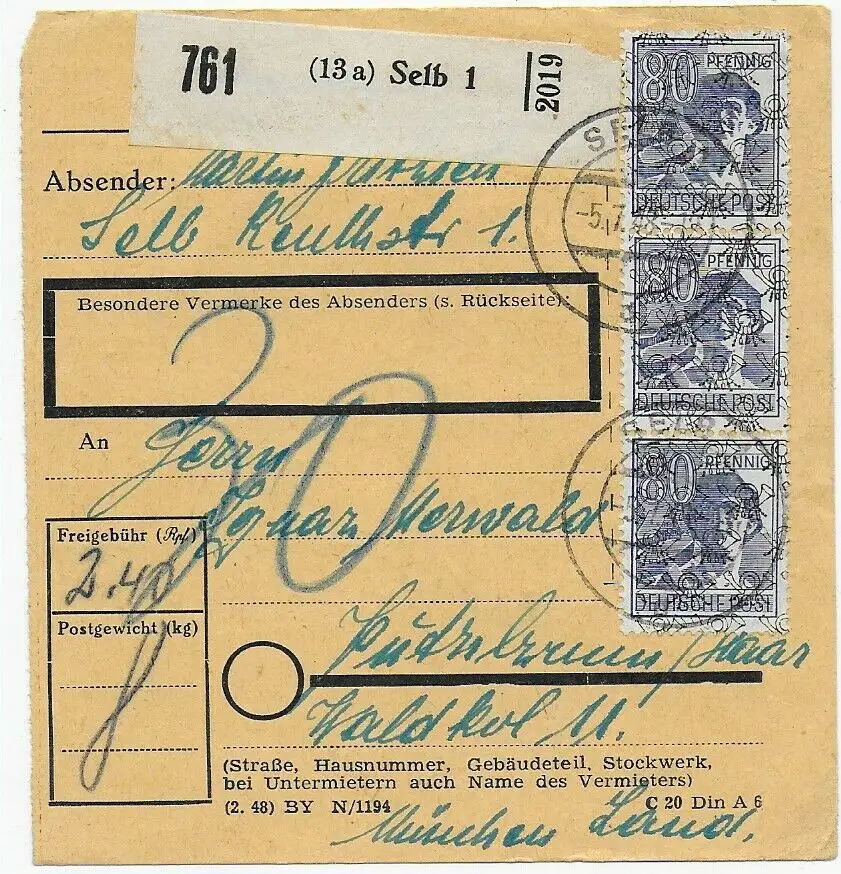 761 (13a) Selb 1 2019
Absender: Martin
Selb Reuthstr 1.
Besondere Vermerke des Absenders (s. Rückseite):
30
An Herrn
Ignaz Morwald
Freigebühr (Rpf)
2.40
Postgewicht (kg)
8
Putzbrunn/Haar
Waldkol 11.
(Straße, Hausnummer, Gebäudeteil, Stockwerk,
bei Untermietern auch Name des Vermieters)
(2. 48) BY N/1194 C 20 Din A 6
München Land.
80 PFENNIG
DEUTSCHE POST
80 PFENNIG
DEUTSCHE POST
80 PFENNIG
DEUTSCHE POST
SELB
-5.7.48
SELB